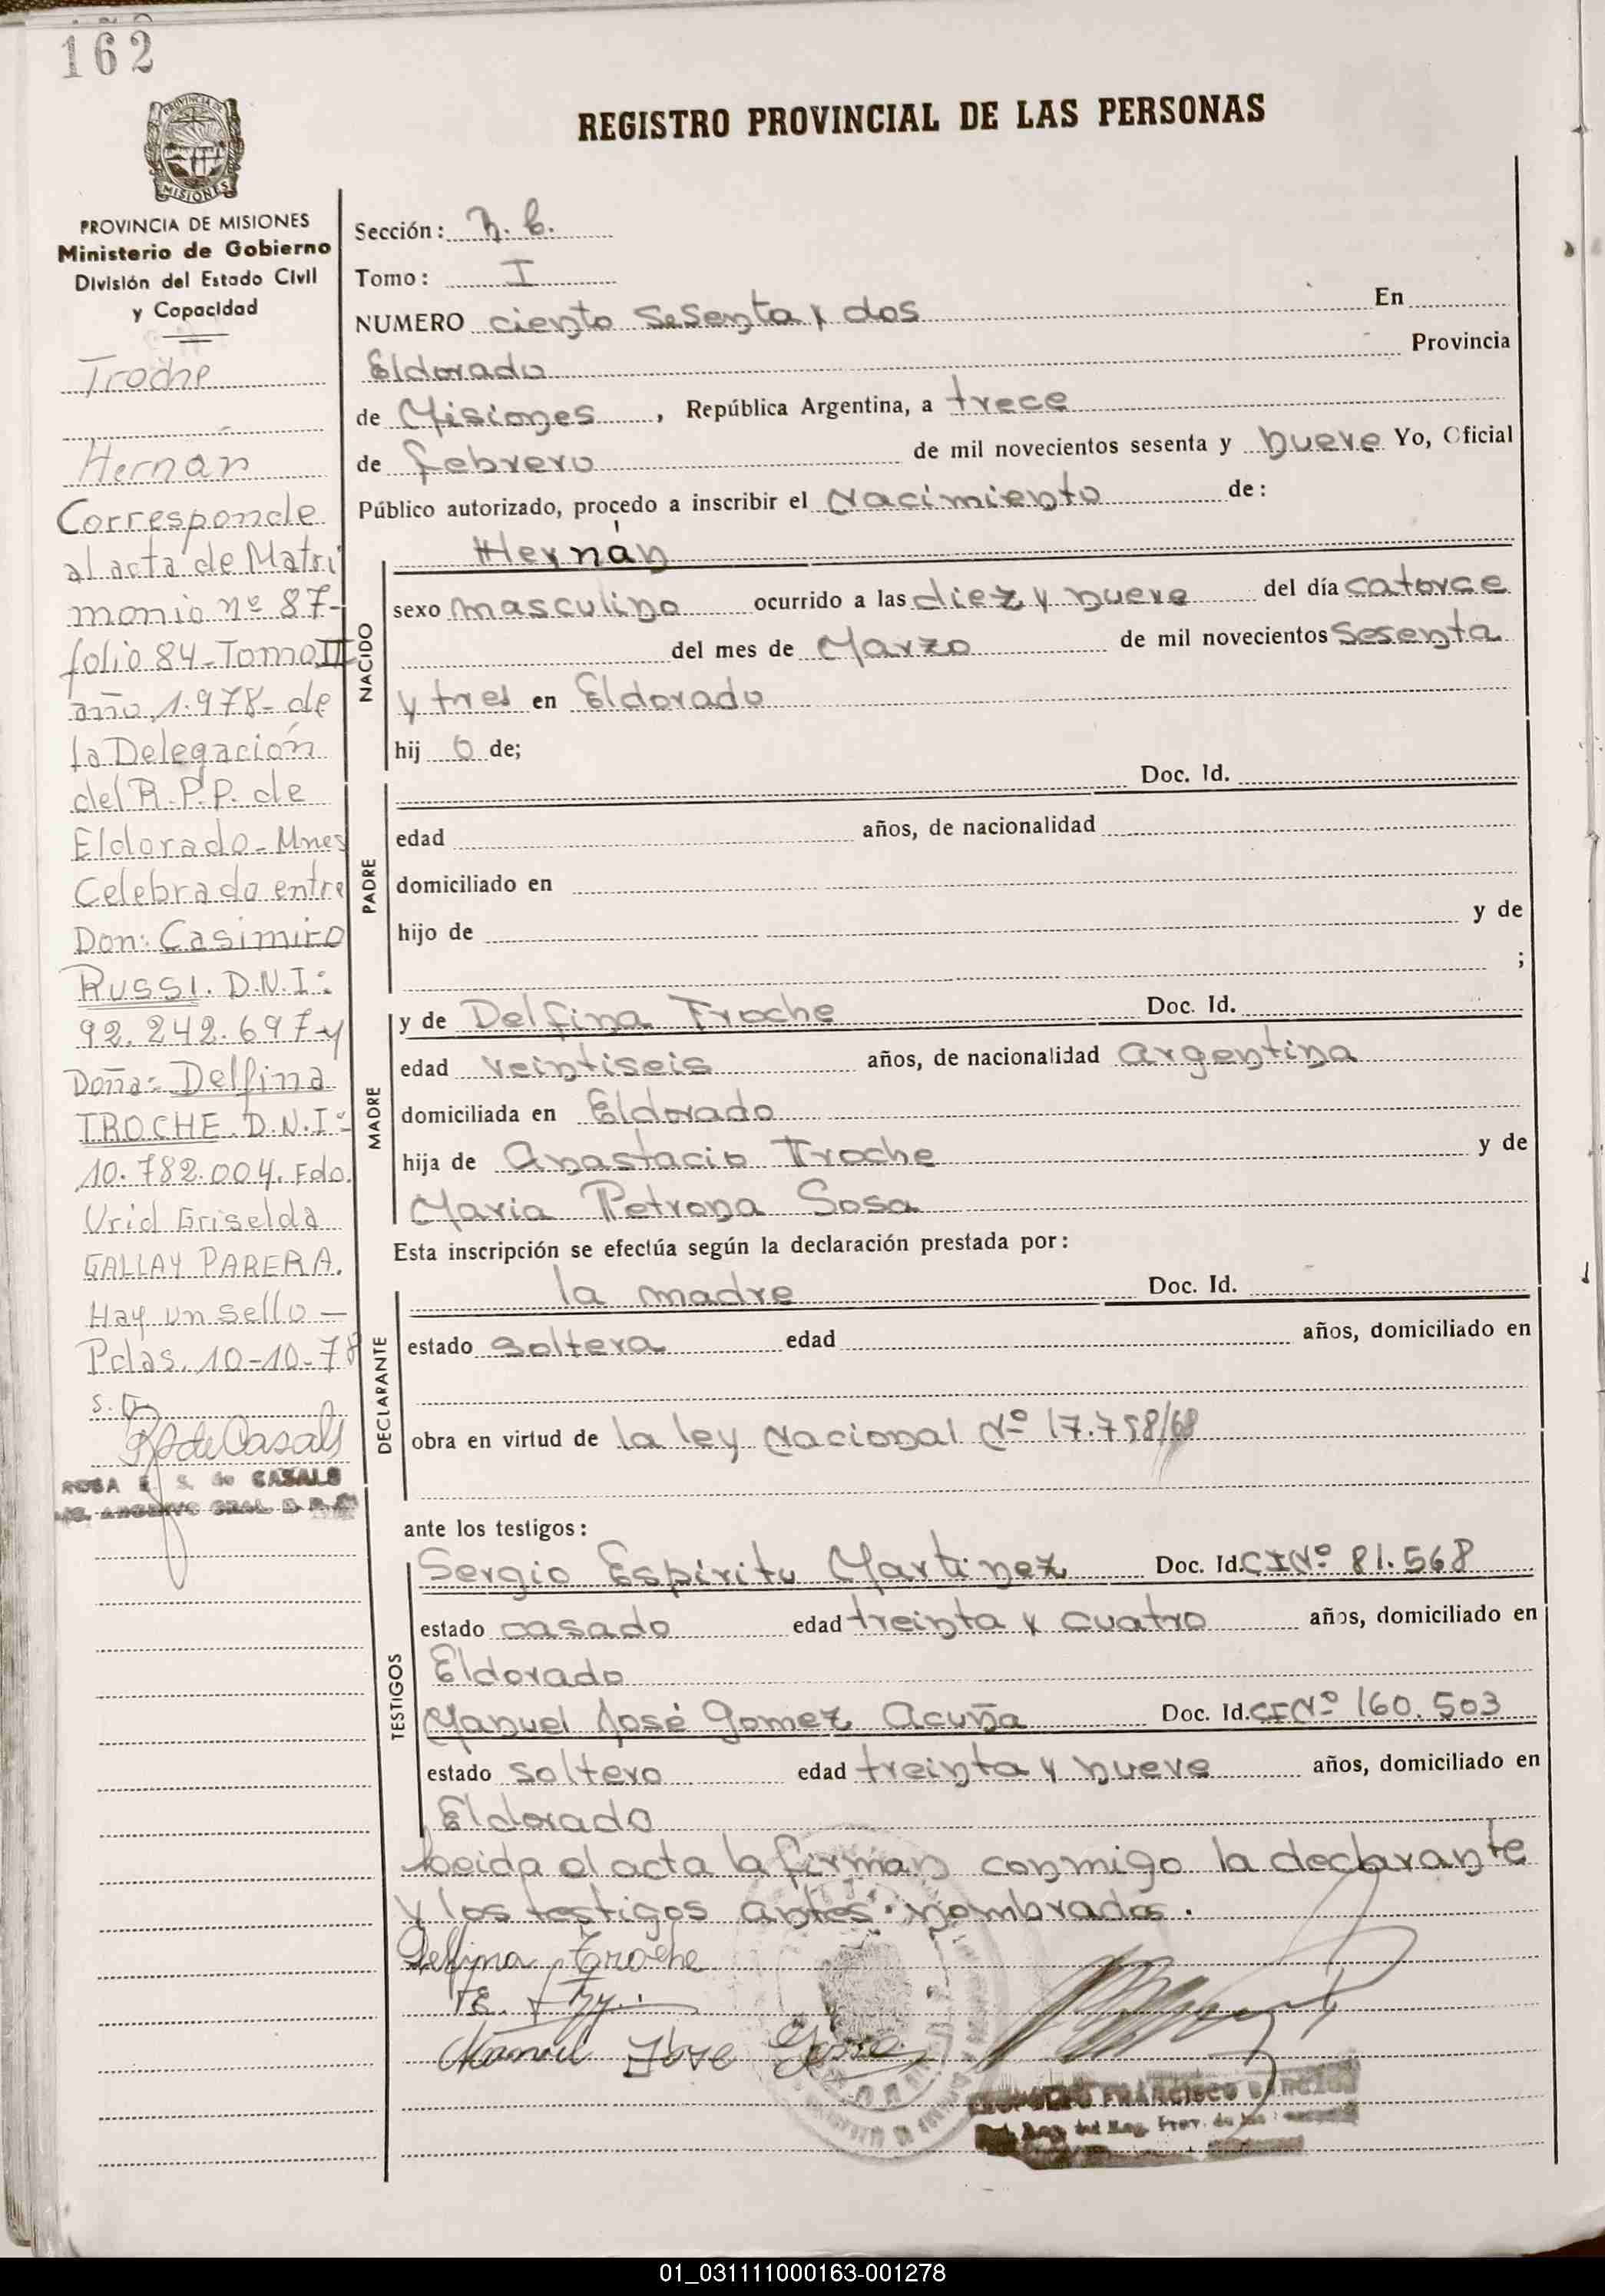 162
REGISTRO PROVINCIAL DE LAS PERSONAS
PROVINCIA DE
MISIONES
PROVINCIA DE MISIONES
Ministerio de Gobierno
División del Estado Civil
y Capacidad
Troche
Hernán
Corresponde
al acta de Matri
monio nº 87-
folio 84-Tomo II
año 1.978- de
la Delegación
del R.P.P. de
Eldorado-Mnes
Celebrado entre
Don: Casimiro
RUSSI. D.N.I:
92.242.697-y
Doña: Delfina
TROCHE. D.N.I:
10.782.004. Fdo.
Urid Griselda
GALLAY PARERA.
Hay un sello-
Pdas. 10-10-78
ROSA E. S. de CASALS
Sección: N. C.
Tomo: I
NUMERO ciento sesenta y dos En
Eldorado Provincia
de Misiones, República Argentina, a trece
de febrero de mil novecientos sesenta y nueve Yo, Oficial
Público autorizado, procedo a inscribir el Nacimiento de:
NACIDO
Hernán
sexo masculino ocurrido a las diez y nueve del día catorce
del mes de Marzo de mil novecientos sesenta
y tres en Eldorado
hij o de;
PADRE
Doc. Id.
edad años, de nacionalidad
domiciliado en
hijo de y de
;
MADRE
y de Delfina Troche Doc. Id.
edad veintiseis años, de nacionalidad argentina
domiciliada en Eldorado
hija de Anastacio Troche y de
Maria Petrona Sosa
Esta inscripción se efectúa según la declaración prestada por:
DECLARANTE
la madre Doc. Id.
estado soltera edad años, domiciliado en
obra en virtud de la ley Nacional Nº 17.758/68
ante los testigos:
TESTIGOS
Sergio Espíritu Martinez Doc. Id. CI Nº 81.568
estado casado edad treinta y cuatro años, domiciliado en
Eldorado
Manuel José Gomez Acuña Doc. Id. CI Nº 160.503
estado soltero edad treinta y nueve años, domiciliado en
Eldorado
Leida el acta la firman conmigo la declarante
y los testigos antes nombrados.
Delfina Troche
Manuel José
FRANCISCO
01_031111000163-001278